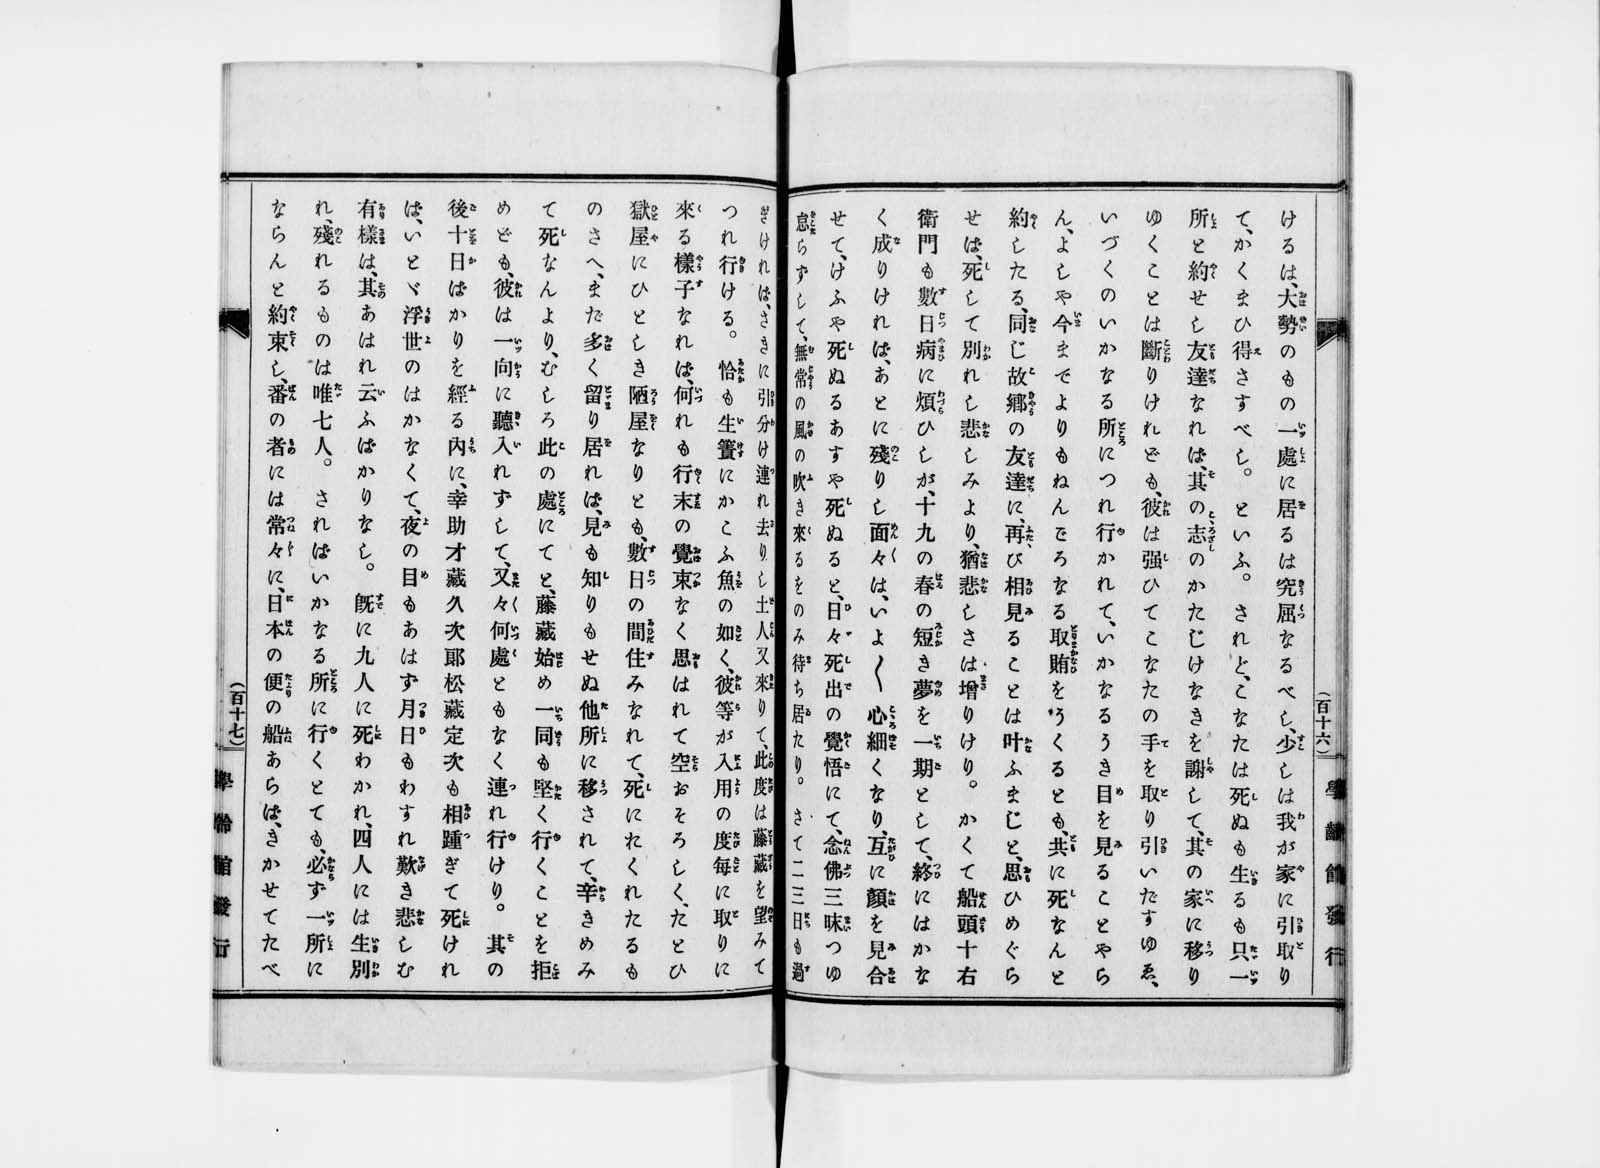 けるは、大勢のもの一處に居るは究屈なるべし、少しは我が家に引取り
て、かくまひ得さすべし。といふ。されど、こなたは死ぬも生るも只一
所と約せし友達なれば、其の志のかたじけなきを謝して、其の家に移り
ゆくことは斷りけれども、彼は强ひてこなたの手を取り引いだすゆゑ、
いづくのいかなる所につれ行かれて、いかなるうき目を見ることやら
ん、よしや今までよりもねんごろなる取賄をうくるとも、共に死なんと
約したる、同じ故鄕の友達に、再び相見ることは叶ふまじと、思ひめぐら
せば、死して別れし悲しみより、猶悲しさは增りけり。かくて船頭十右
衞門も數日病に煩ひしが、十九の春の短き夢を一期として、終にはかな
く成りければ、あとに殘りし面々は、いよ〳〵心細くなり、互に顏を見合
せて、けふや死ぬるあすや死ぬると、日々死出の覺悟にて、念佛三昧つゆ
怠らずして、無常の風の吹き來るをのみ待ち居たり。さて二三日も過
(百十六)
學齡館發行
ぎければ、さきに引分け連れ去りし土人又來りて、此度は藤藏を望みて
つれ行ける。恰も生簀にかこふ魚の如く、彼等が入用の度每に取りに
來る樣子なれば、何れも行末の覺束なく思はれて空おそろしく、たとひ
獄屋にひとしき陋屋なりとも、數日の間住みなれて、死にたくれたるも
のさへ、まだ多く留り居れば、見も知りもせぬ他所に移されて、辛きめみ
て死なんより、むしろ此の處にてと、藤藏始め一同も堅く行くことを拒
めども、彼は一向に聽入れずして、又々何處ともなく連れ行けり。其の
後十日ばかりを經る內に、幸助才藏久次郞松藏定次も相踵ぎて死けれ
ば、いとゞ浮世のはかなくて、夜の目もあはず月日もわすれ歎き悲しむ
有樣は、其あはれ云ふばかりなし。旣に九人に死わかれ、四人には生別
れ、殘れるものは唯七人。さればいかなる所に行くとても、必ず一所に
ならんと約束し、番の者には常々に、日本の便の船あらば、きかせてたべ
(百十七)
學齡館發行